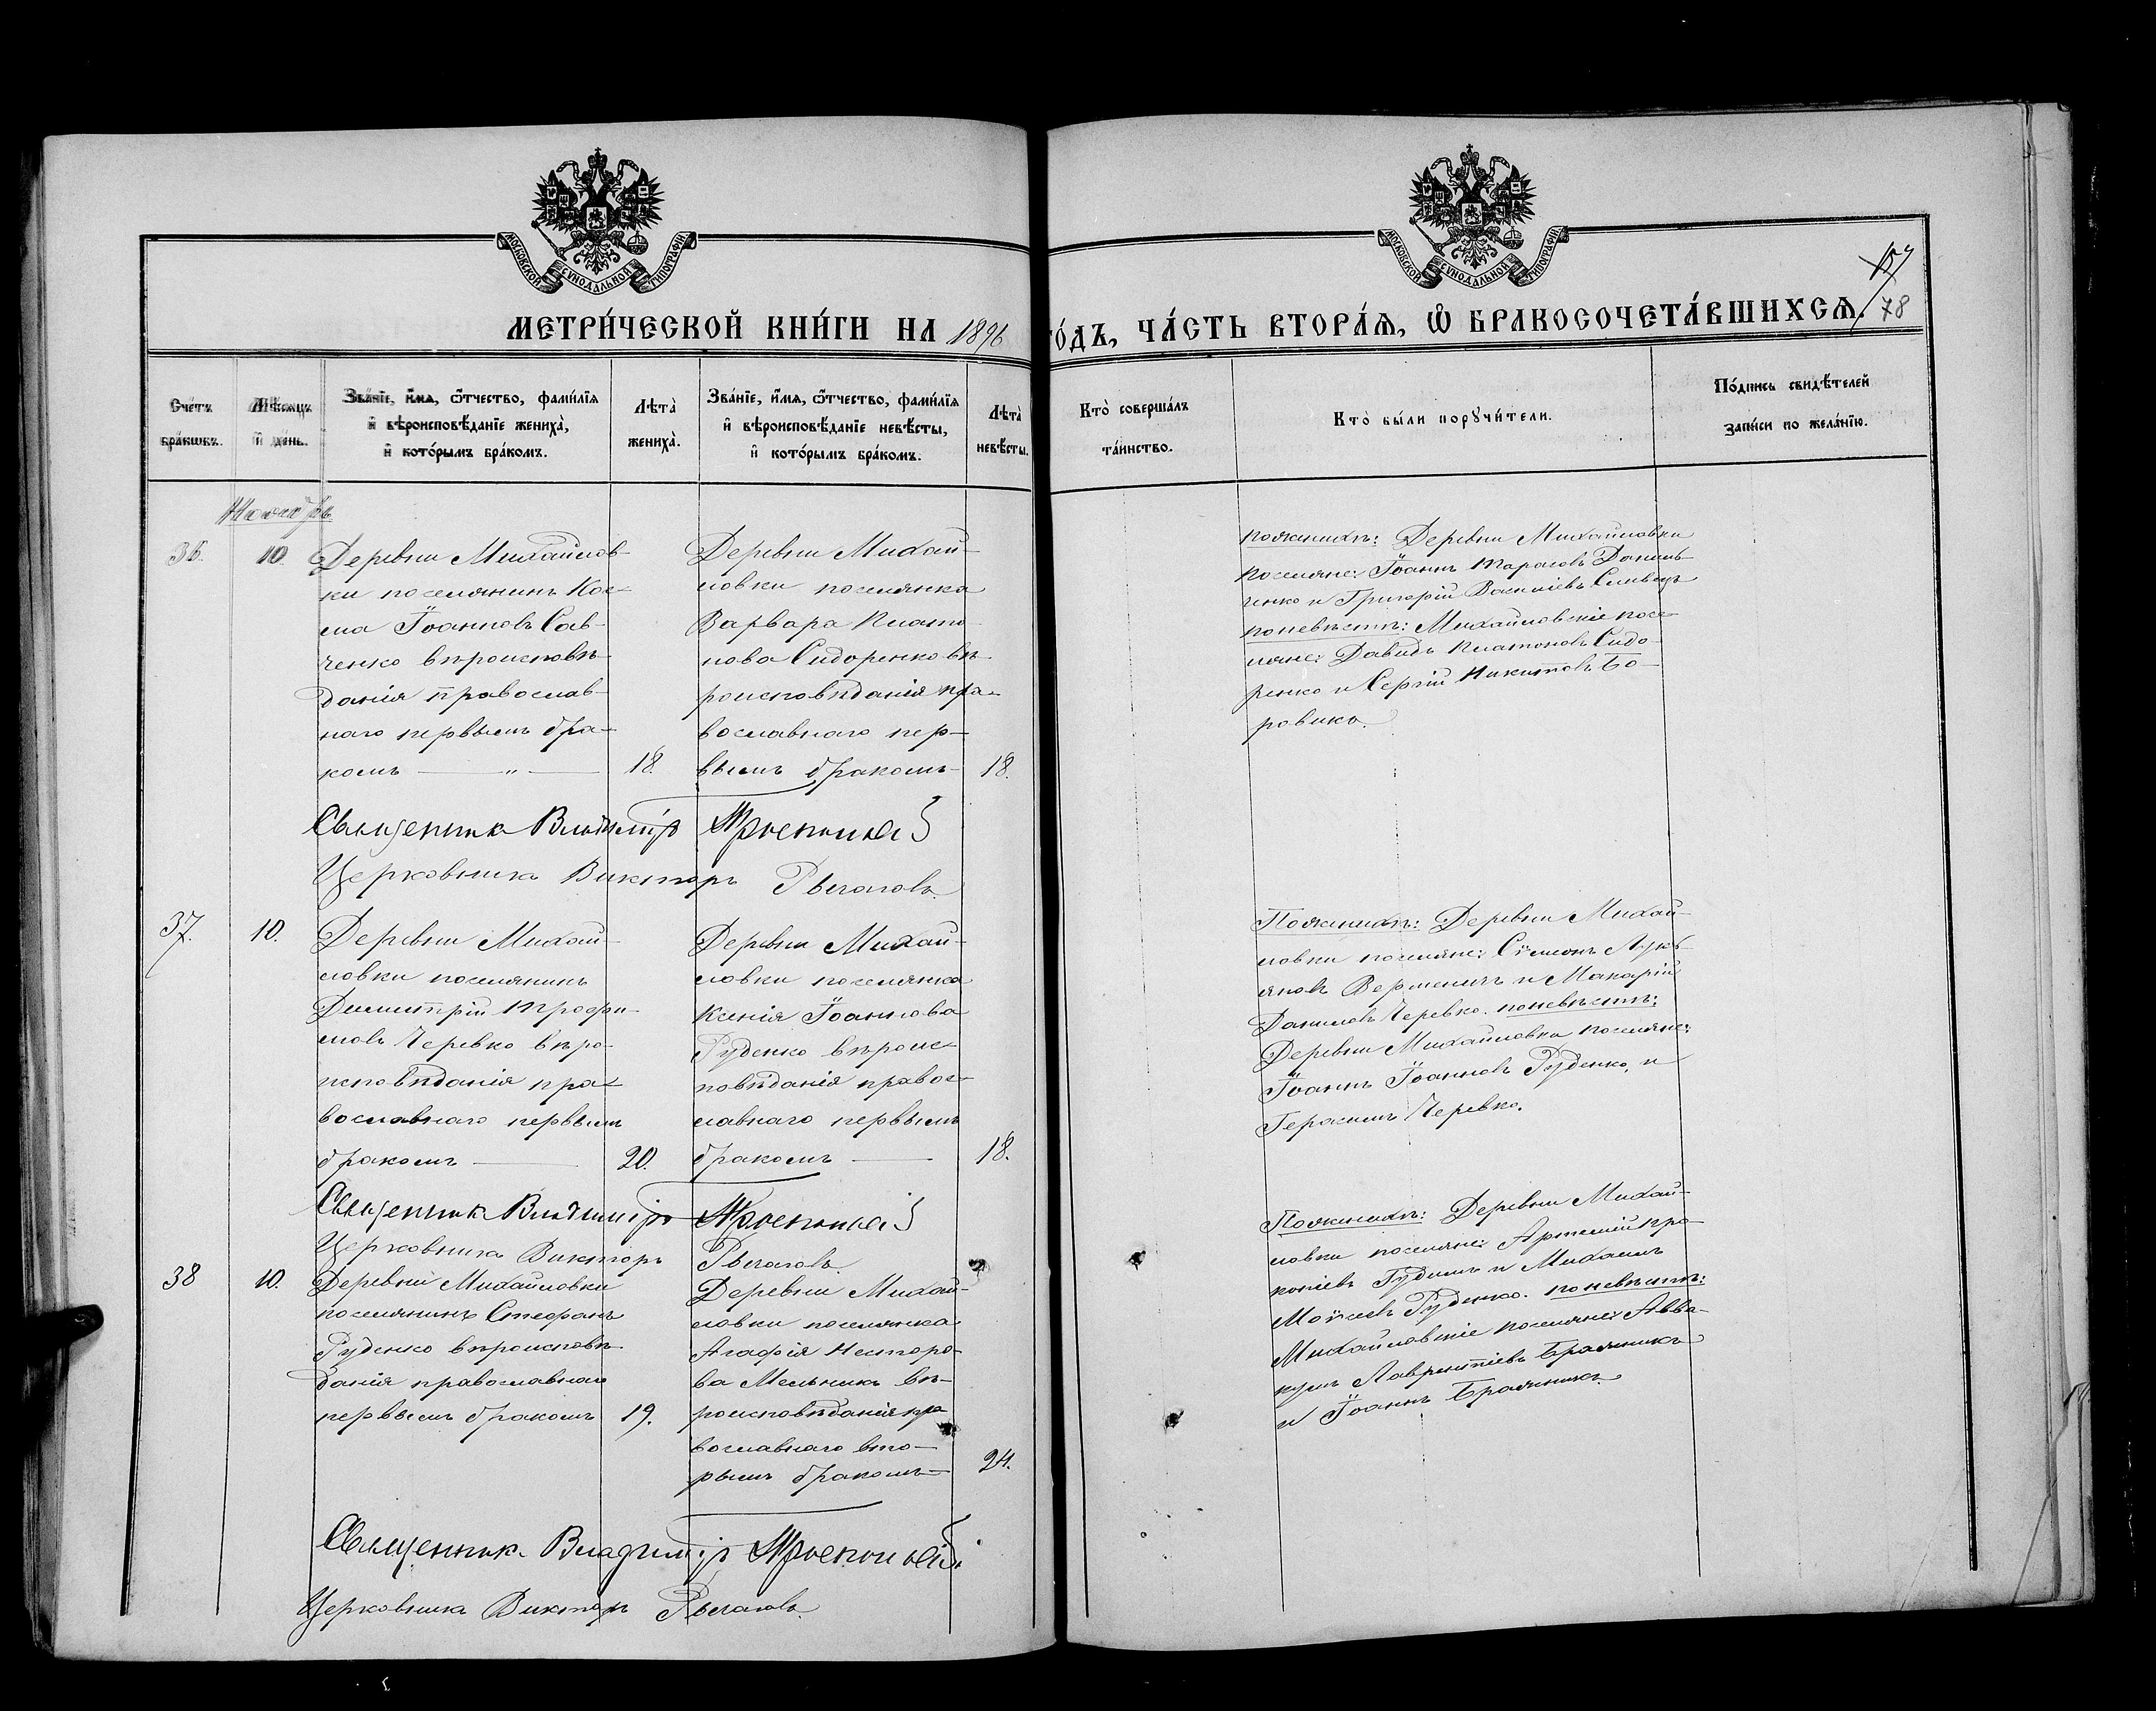 МОСКОВСКОЙ СѴНОДАЛЬНОЙ ТИПОГРАФІИ
МОСКОВСКОЙ СѴНОДАЛЬНОЙ ТИПОГРАФІИ
МЕТРИ́ЧЕСКОЙ КНИ́ГИ НА 1896
ГО́ДЪ, ЧА́СТЬ ВТОРА́Ѧ, Ѽ БРАКОСОЧЕТА́ВШИХСѦ.
78
Счетъ браковъ.
Мѣсяцъ и день.
Зва́нїе, и҆́мѧ, ѻ҆́тчество, фами́лїѧ
и҆ вѣроисповѣ́данїе жениха̀,
и҆ кото́рымъ бра́комъ.
Лѣта̀
жениха̀.
Зва́нїе, и҆́мѧ, ѻ҆́тчество, фами́лїѧ
и҆ вѣроисповѣ́данїе невѣ́сты,
и҆ кото́рымъ бра́комъ.
Лѣта̀
невѣ́сты.
Кто̀ соверша́лъ
та́инство.
Кто̀ бы́ли порꙋчи́тели.
По́дпись свидѣ́телей
за́писи по жела́нїю.
Ноябрь
36. 10.
Деревни Михайлов-
ки поселянинъ Кос-
ма Іоанновъ Сав-
ченко вѣроисповѣ-
данія православ-
наго первымъ бра-
комъ — „ — 18.
Деревни Михай-
ловки поселянка
Варвара Плато-
нова Сидоренко вѣ-
роисповѣданія пра-
вославнаго пер-
вымъ бракомъ 18.
по женихѣ: Деревни Михайловки
поселяне: Іоаннъ Тарасовъ Даниль-
ченко и Григорій Василіевъ
по невѣстѣ: Михайловскіе посе-
ляне: Давидъ Платоновъ Сидо-
ренко и Сергій Никитовъ Бо-
ровикъ.
Священникъ Владиміръ
Церковникъ Викторъ Рычаговъ
37. 10.
Деревни Михай-
ловки поселянинъ
Димитрій Трофи-
мовъ Черевко вѣро-
исповѣданія пра-
вославнаго первымъ
бракомъ — 20.
Деревни Михай-
ловки поселянка
Ксенія Іоаннова
Руденко вѣроис-
повѣданія правос-
лавнаго первымъ
бракомъ — 18.
По женихѣ: Деревни Михай-
ловки поселяне: Сѵмеонъ Лукь-
яновъ и Макарій
Даниловъ Черевко. по невѣстѣ:
Деревни Михайловки поселяне:
Іоаннъ Іоанновъ Руденко, и
Герасимъ Черевко.
Священникъ Владиміръ
Церковникъ Викторъ Рычаговъ
38 10.
Деревни Михайловки
поселянинъ Стефанъ
Руденко вѣроисповѣ-
данія православнаго
первымъ бракомъ 19.
Деревни Михай-
ловки поселянка
Агафія Несторо-
ва Мельникъ вѣ-
роисповѣданія пра
вославнаго вто-
рымъ бракомъ 24.
По женихѣ: Деревни Михай-
ловки поселяне: Артемій Про-
копіевъ и Михаилъ
Моѵсеевъ Руденко. по невѣстѣ:
Михайловскіе поселяне: Авва-
кумъ Лаврентіевъ Бражникъ
и Іоаннъ Бражникъ.
Священникъ Владиміръ
Церковникъ Викторъ Рычаговъ